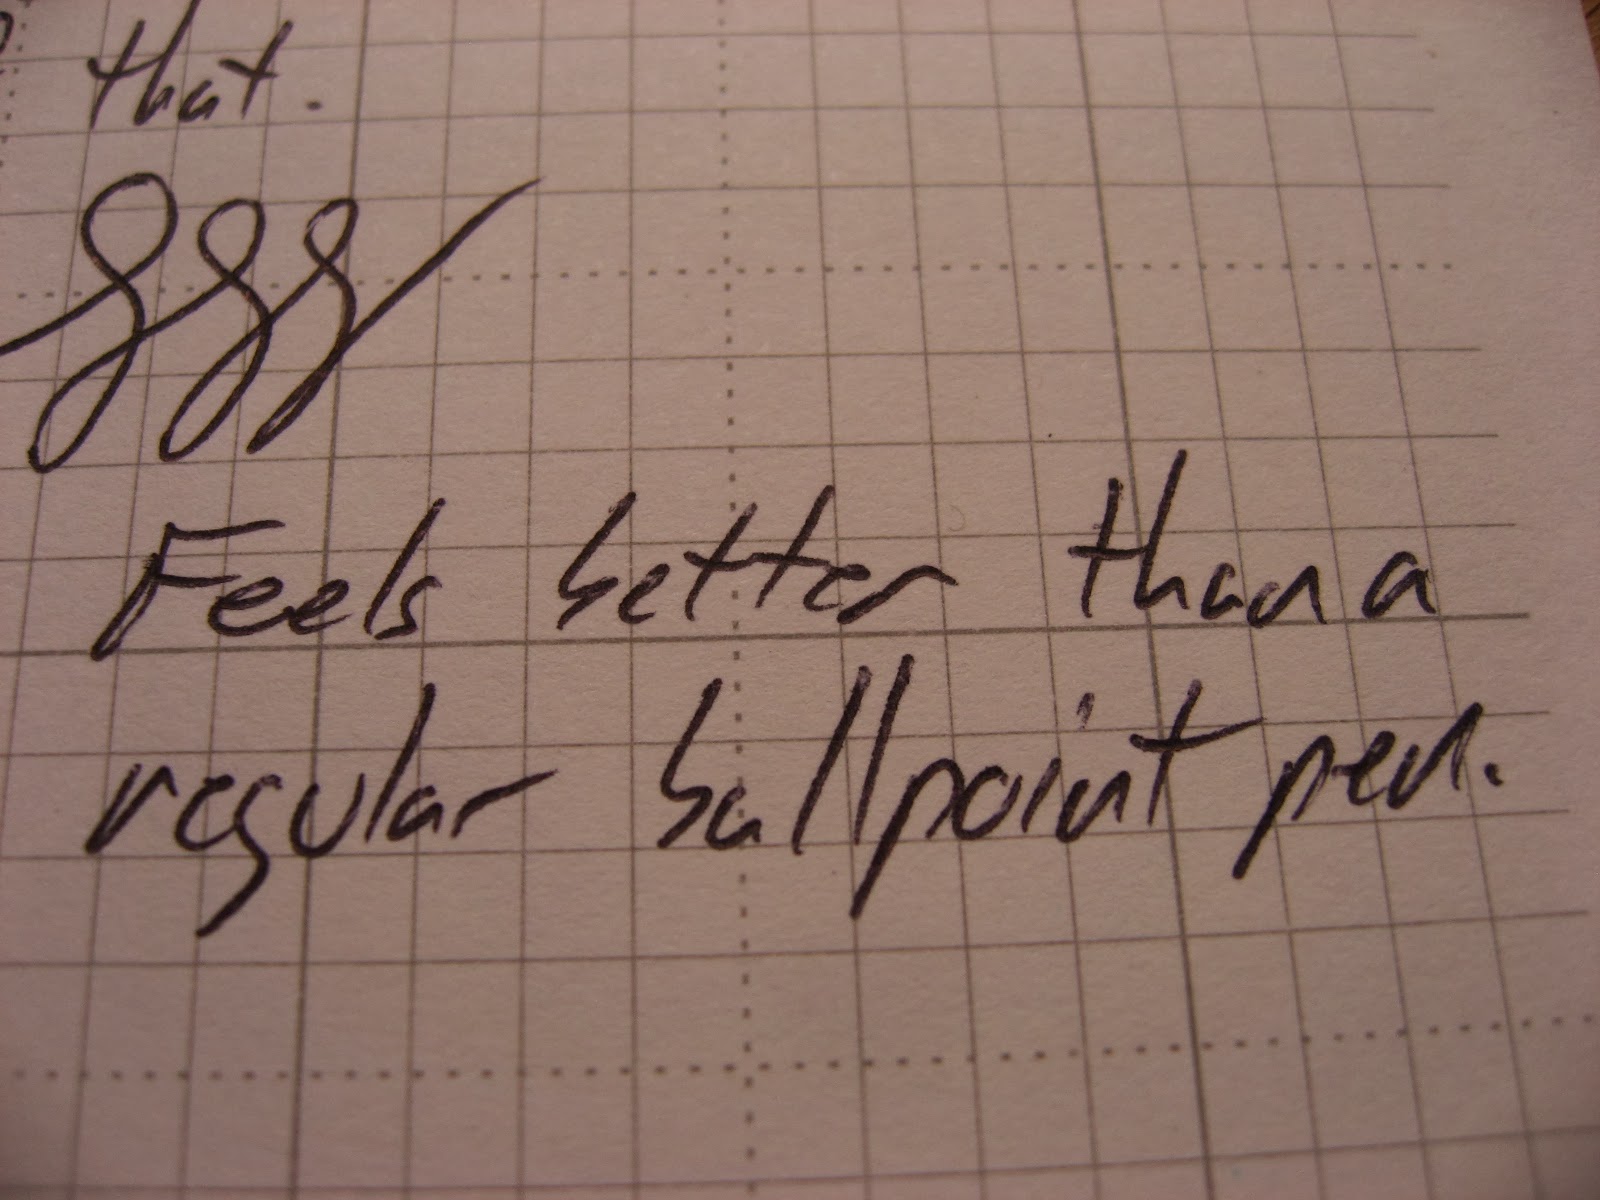 that.
Feels better than a
regular ballpoint pen.